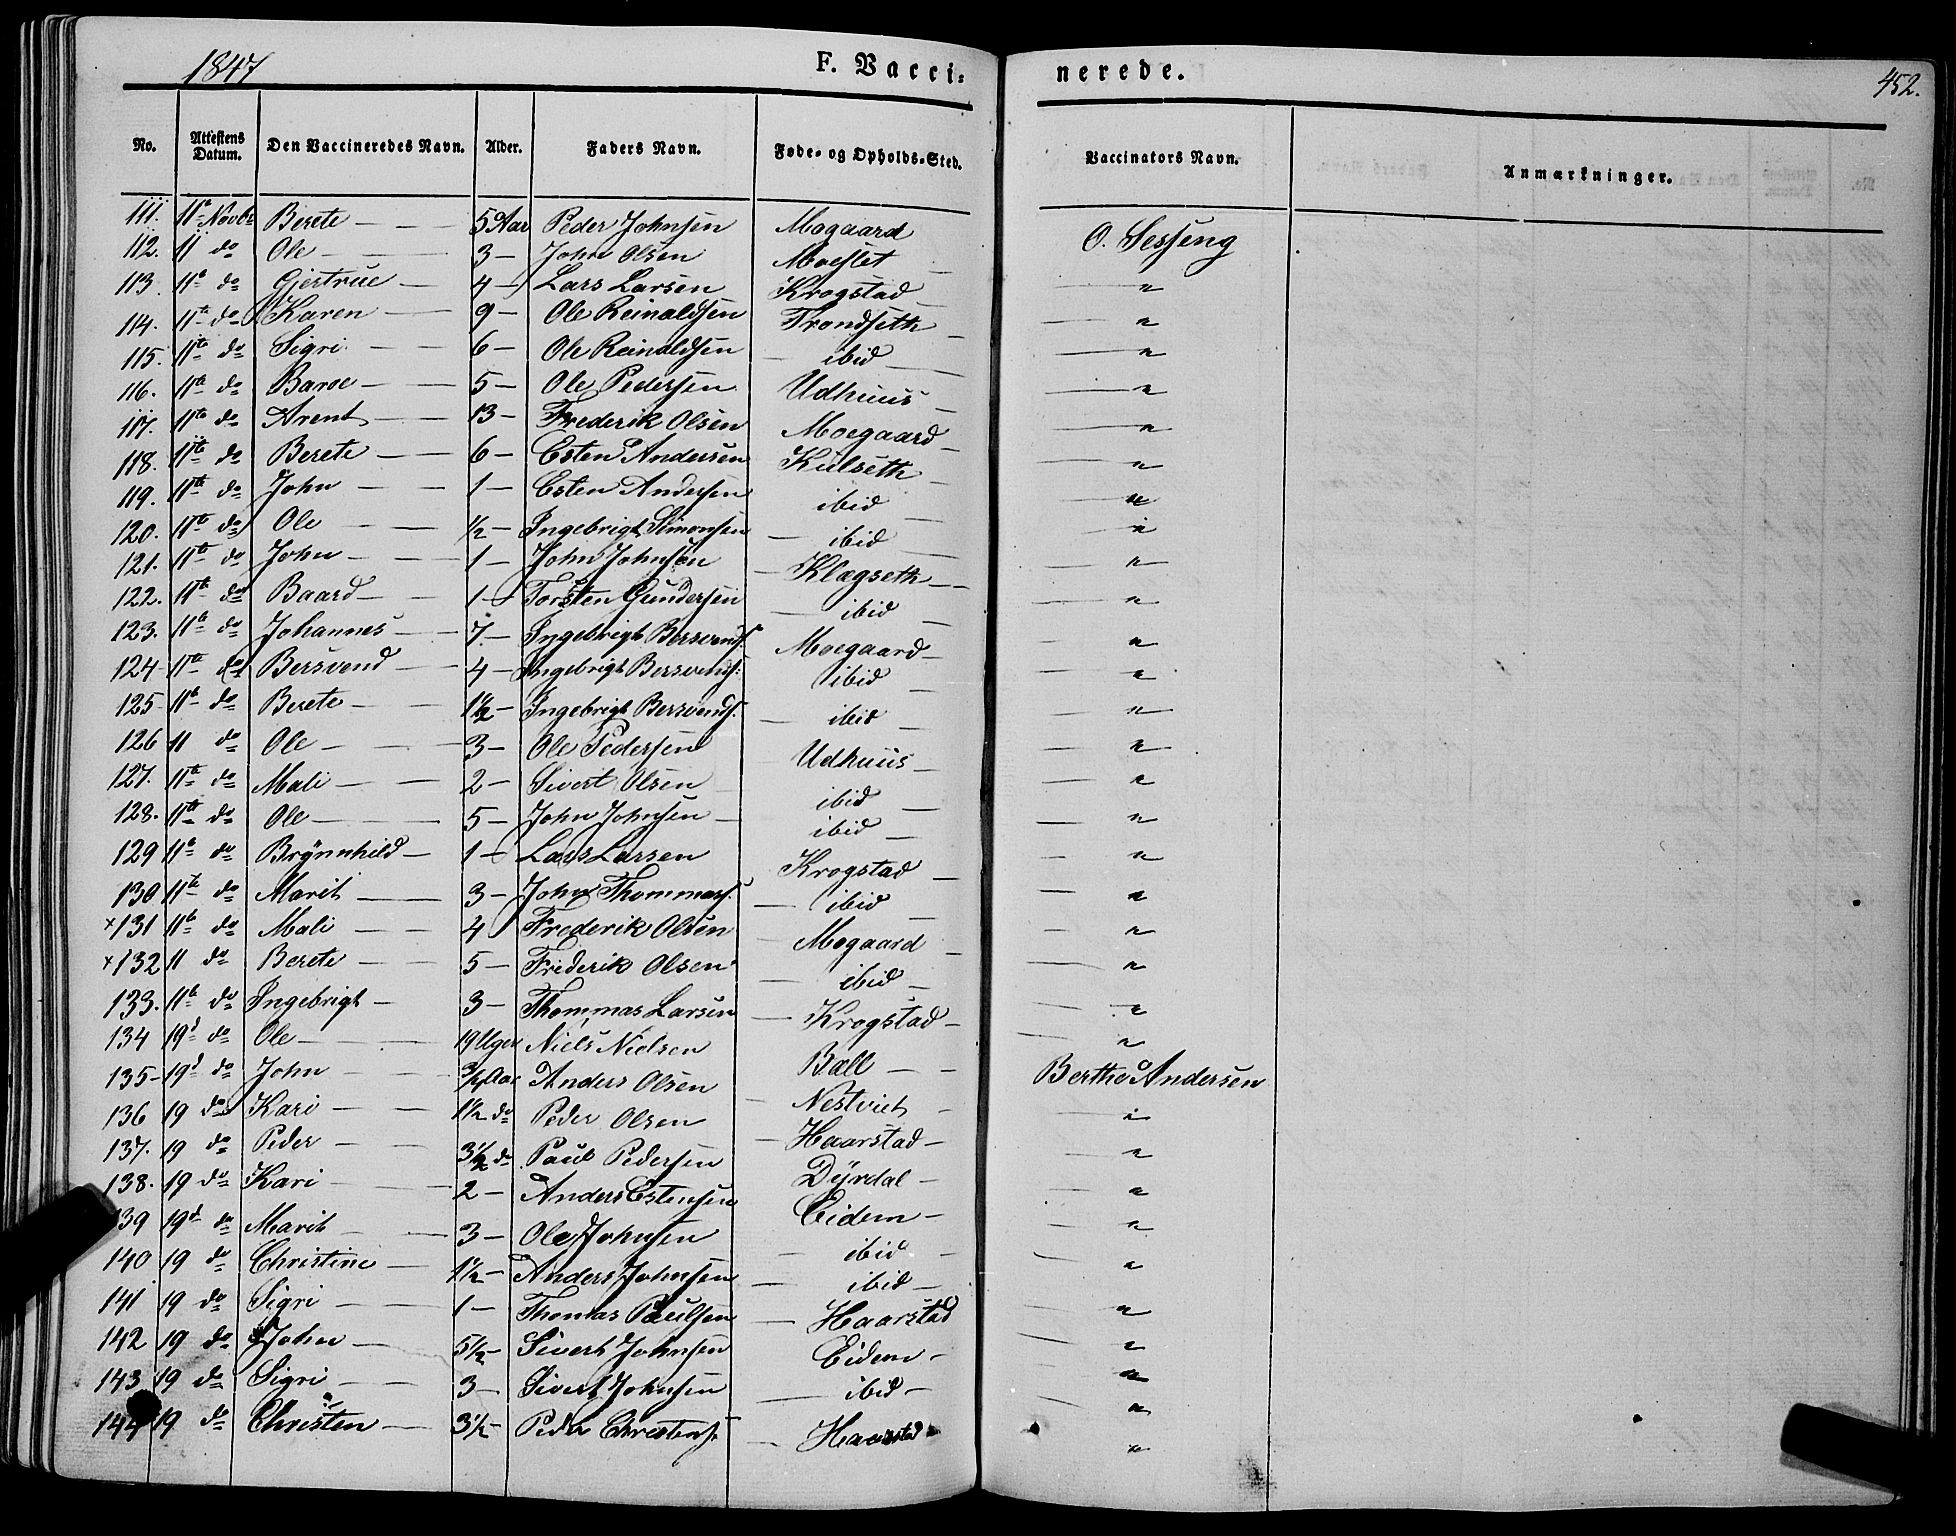 1847 F. Vacci= nerede. 452.
No. Attestens Datum. Den Vaccineredes Navn. Alder. Faders Navn. Føde- og Opholds-Sted. Vaccinators Navn. Anmærkninger.
111. 11te Novbr Berete — — 5 Aar Peder Johnsen Mogaard O. Sesseng
112. 11 do Ole — — 3 — John Olsen Moeslet —
113. 11te do Gjertrue — 4 — Lars Larsen Krogstad — — "
114. 11te do Karen — — 9 — Ole Reinaldsen Trondseth — — "
115. 11te do Sigri — — 6 — Ole Reinaldsen — ibid — — "
116. 11te do Baroe — — 5 — Ole Pedersen Udhuus — — "
117. 11te do Arent — — 13 — Frederik Olsen Moegaard — — "
118. 11te do Berete — — 6 — Esten Andersen Kulseth — — "
119. 11te do John — — 1 — Esten Andersen ibid — — "
120. 11te do Ole — — 1/2 — Ingebrigt Simonsen — ibid — — "
121. 11te do John — — 1 — John Johnsen — Klægseth — — "
122. 11te do Baard — — 1 — Torsten Gundersen — ibid — — "
123. 11te do Johannes — — 7. — Ingebrigt Bersvends. Moegaard — — "
124 11te do Bersvend — — 4 — Ingebrigt Bersvends. ibid — — "
125 11te do Berete — — 1 1/2 — Ingebrigt Bersvends. — ibid — — "
126 11 do Ole — — 3 — Ole Pedersen Udhuus — — "
127. 11te do Mali — — 2 — Sivert Olsen ibid — — "
128. 11te do Ole — — 5 — John Johnsen — ibid — — "
129 11te do Brynnhild — 1 — Lars Larsen Krogstad — — "
130 11te do Marit — — 3 — John Thommas. — ibid — — "
×131 11te do Mali — — 4 Frederik Olsen — Mogaard — — "
×132 11 do Berete — — 5 — Friderik Olsen — ibid — — "
133. 11te do Ingebrigt — 3 — Thommas Larsen — Krogstad — — "
134 19d do Ole — — 19 Uger Niels Nielsen Ball — — — "
135 — 19d do John — — 3/4 Aar Anders Olsen Nestviet — Berthe Andersen
136 19 do Kari — — 1 1/2 do Peder Olsen — Haarstad — — "
137. 19 do Peder — — 3 1/2 do Paul Pedersen Dyrdal — — "
138. 19 do Kari — — 2 — Anders Estensen Eidem — — "
139 19d do Marit — — 3 — Ole Johnsen — ibid — — "
140 19 do Christine — 1 1/2 — Anders Johnsen — ibid — — "
141 19 do Sigri — — 1 — Thomas Paulsen — Haarstad — "
142 19 do John — — 5 1/2 — Sivert Johnsen Eidem — — "
143 19 do Sigri — — 3 — Sivert Johnsen — ibid — — "
144 19 do Christen — 3 1/2 — Peder Christens. — Haarstad — "